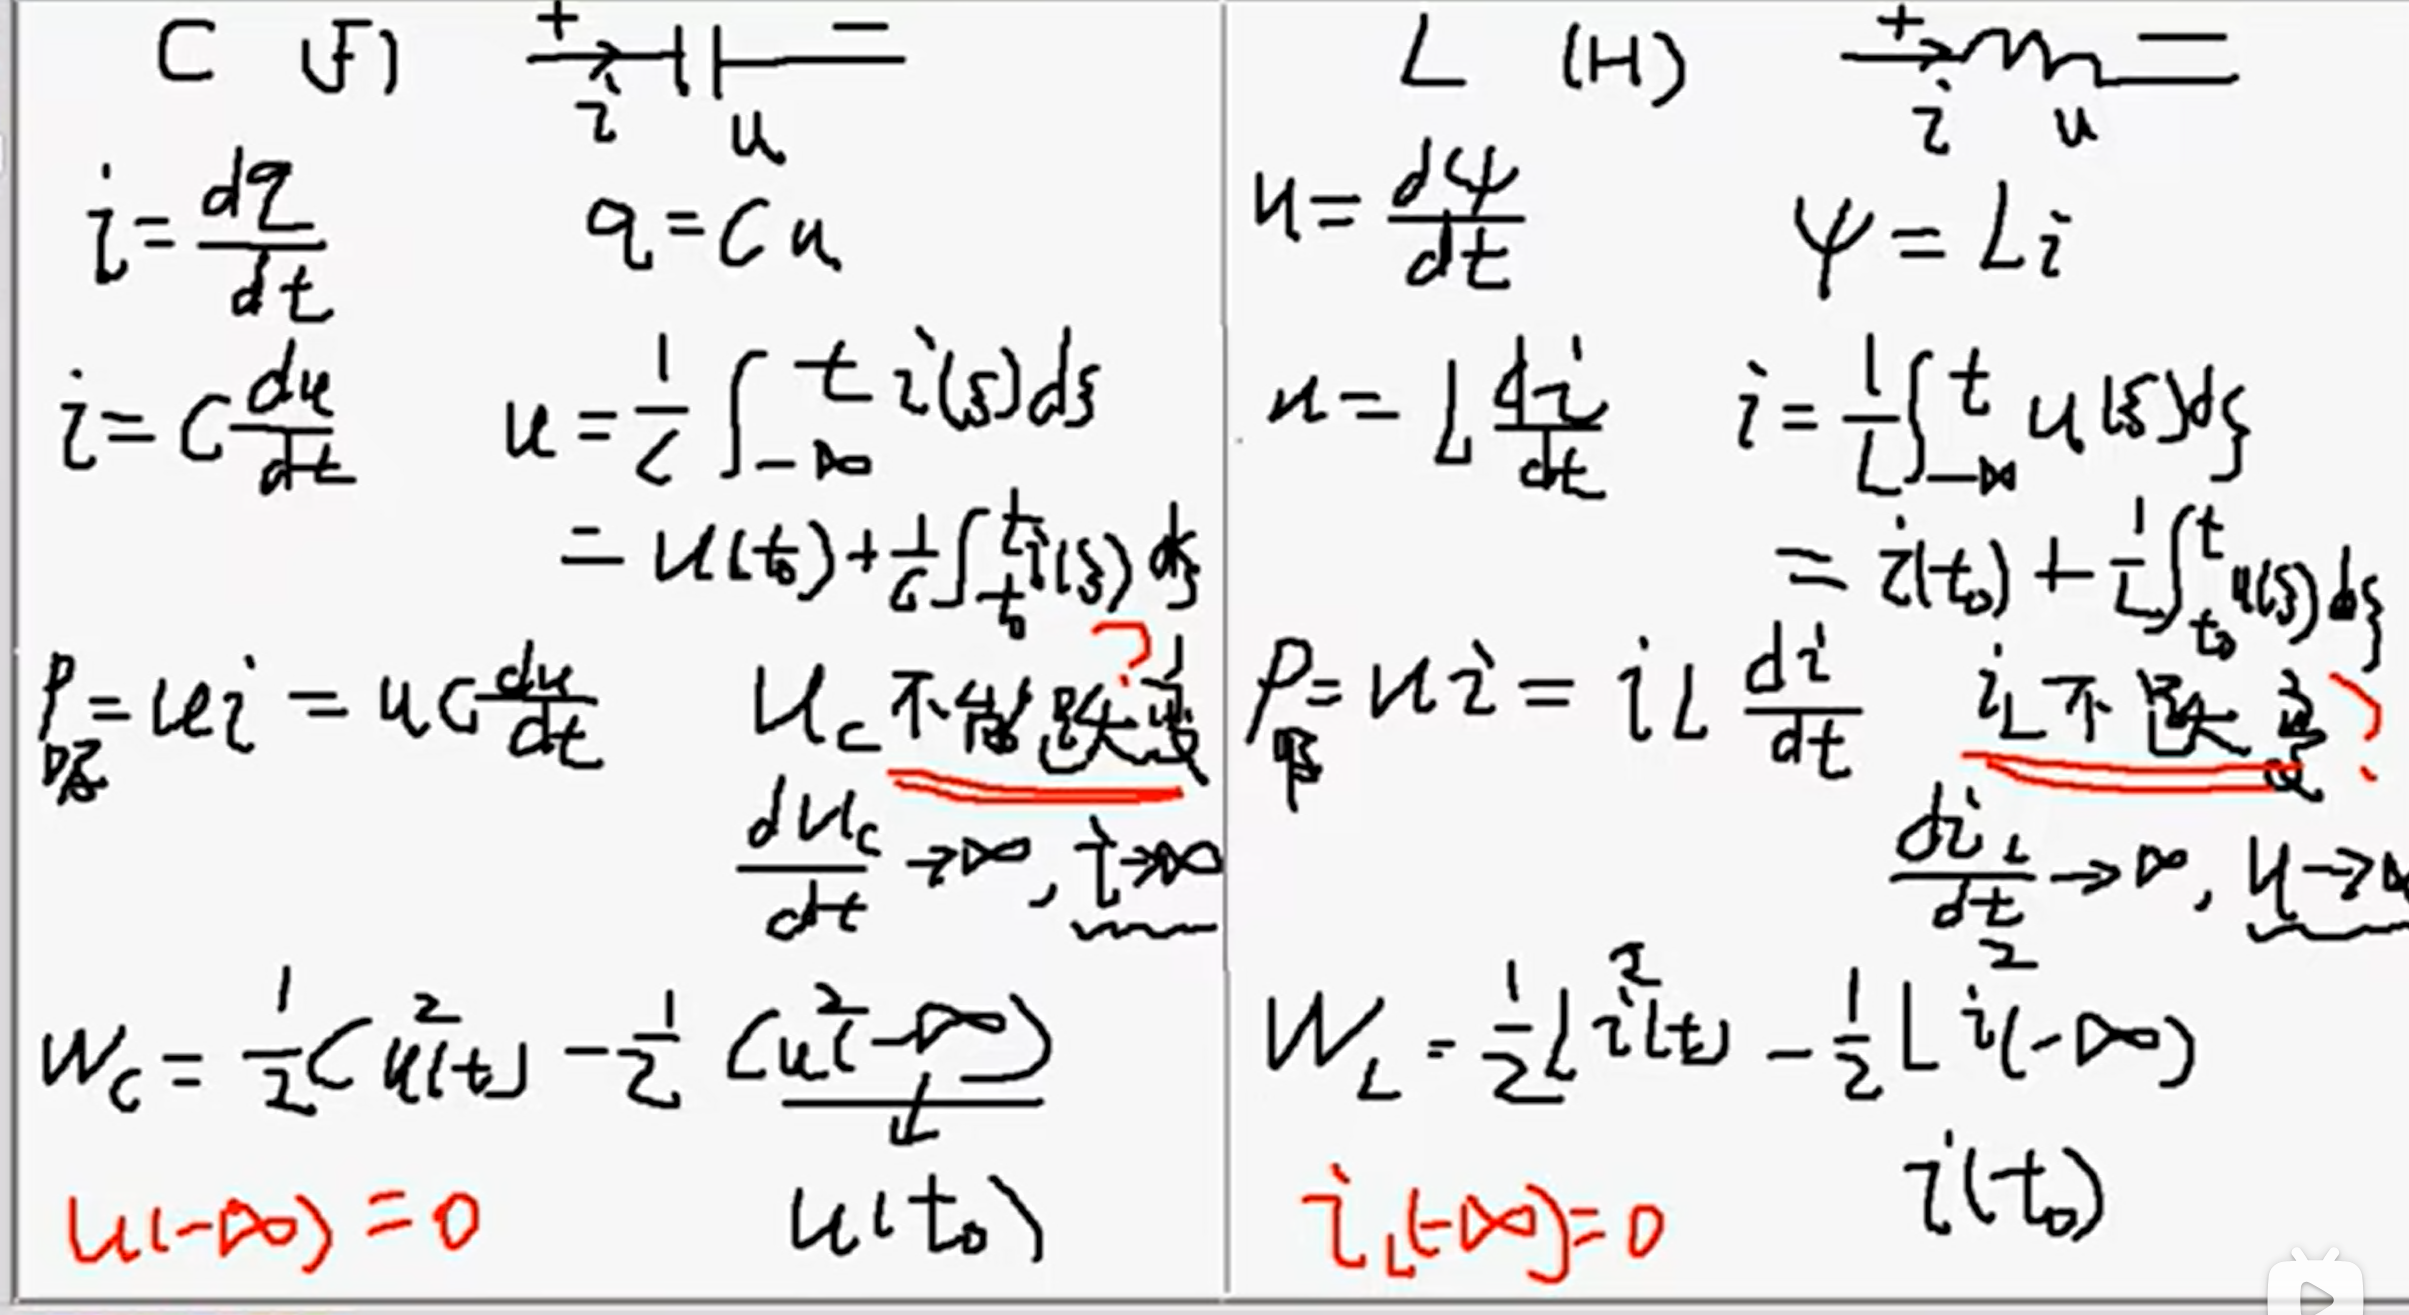 C (F) + i u −
i = dq/dt q = Cu
i = C du/dt u = 1/C ∫_{-∞}^{t} i(ξ)dξ
= u(t₀) + 1/C ∫_{t₀}^{t} i(ξ)dξ
P吸 = ui = uC du/dt u_C 不能跃变 ?
du_C/dt → ∞, i → ∞
W_C = 1/2 C u²(t) − 1/2 C u²(−∞)
u(−∞) = 0 u(t₀)
L (H) + i u −
u = dψ/dt ψ = Li
u = L di/dt i = 1/L ∫_{-∞}^{t} u(ξ)dξ
= i(t₀) + 1/L ∫_{t₀}^{t} u(ξ)dξ
P吸 = ui = iL di/dt i_L 不跃变 ?
di_L/dt → ∞, u → ∞
W_L = 1/2 L i²(t) − 1/2 L i²(−∞)
i_L(−∞) = 0 i(t₀)